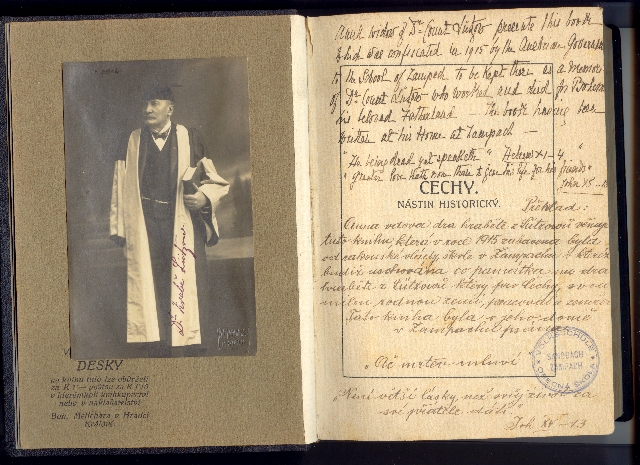 Dr. Count Lützow
DESKY
na knihu tuto lze obdržeti
za K 1·— poštou za K 1·20
v kterémkoli knihkupectví
nebo v nakladatelství
Boh. Melichara v Hradci
Králové.
Anna widow of Dr Count Lützow presents this book
which was confiscated in 1915 by the Austrian Government
to the School of Zampach to be kept there as a Memory
of Dr Count Lützow who worked and died for Bohemia
his beloved Fatherland — the book having been
written at his Home at Zampach —
"He being dead yet speaketh" Hebrews XI - 4
"Greater love hath non than to give his life for his friends"
John 15 - 13
ČECHY.
NÁSTIN HISTORICKÝ.
Překlad:
Anna vdova dra hraběte z Lützowů věnuje
tuto knihu, která v roce 1915 zabavena byla
od rakouské vlády, škole v Žampachu, v které
budiž uschována co památka na dra
hraběte z Lützowů který pro Čechy, svou
milou rodnou zemi, pracoval a zemřel.
Tato kniha byla v jeho domě
v Žampachu psána.
"Ač mrtev mluví
"Není větší lásky, než svůj život za
své přátele dáti"
Joh XV - 13
ŽAMPACH